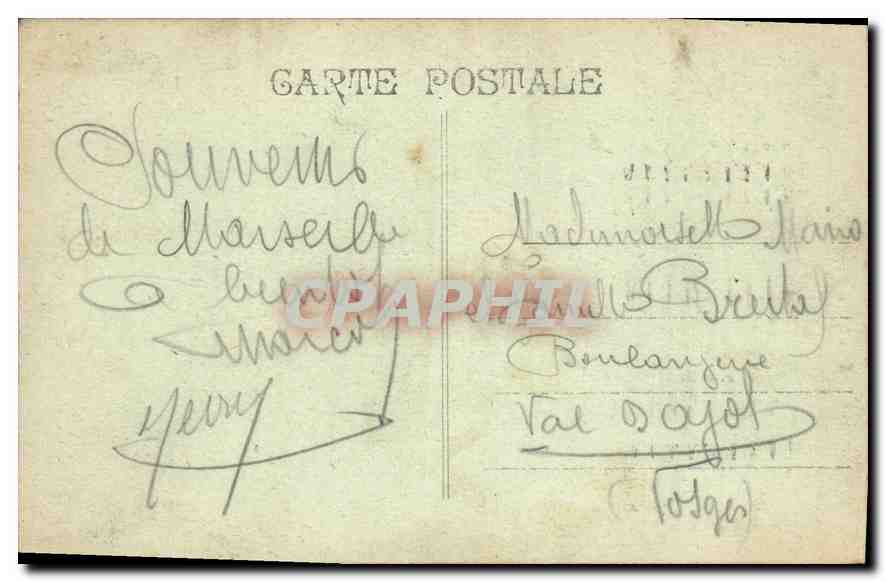 CARTE POSTALE
Souvenirs
de Marseille
Marcel
Henry
Mademoiselle Maria
Bristal
Boulangerie
Val d'Ajol
(Vosges)
CPARPHIL